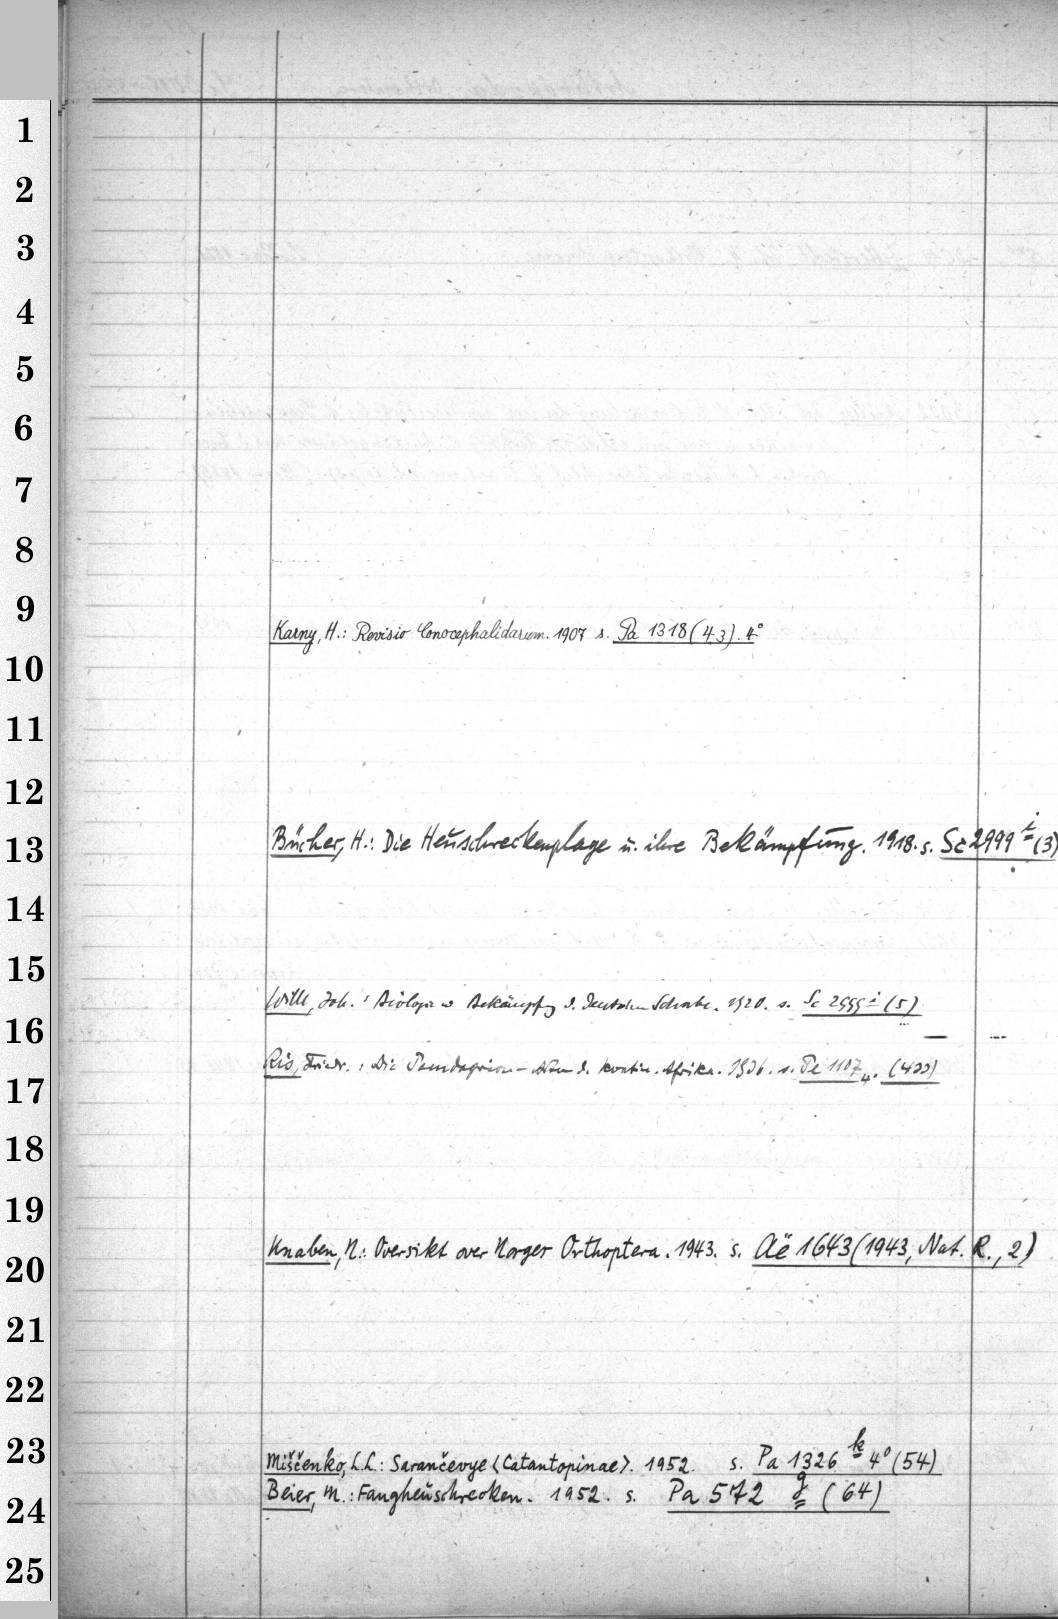 1
2
3
4
5
6
7
8
9
Karny, H.: Revisio Conocephalidarum. 1907 s. Pa 1318 (43). 4°
10
11
12
13
Bücher, H.: Die Heuschreckenplage u. ihre Bekämpfung. 1918. s. Sc 2999 i (3)
14
15
Wille, Joh.: Biologie u Bekämpfg d. deutschen Schabe. 1920. s. Sc 2999 i (5)
16
Ris, Friedr.: Die Pseudagrion-Arten d. kontin. Afrika. 1936. s. Pe 1107 4.
17
18
19
Knaben, N.: Oversikt over Norges Orthoptera. 1943. s. Aë 1643 (1943, Nat. R., 2)
20
21
22
23
Miščenko, L.L.: Sarančevye <Catantopinae>. 1952. s. Pa 1326 k 4° (54)
Beier, M.: Fangheuschrecken. 1952. s. Pa 572 g (64)
24
25